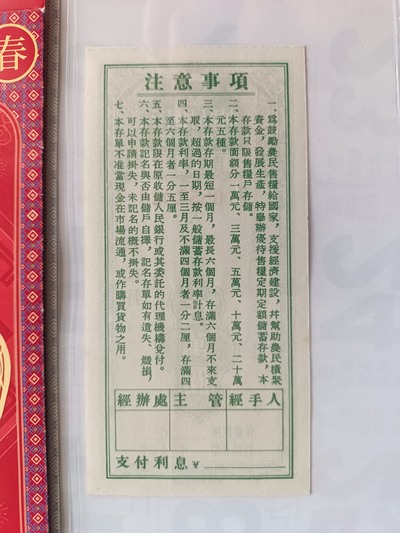 春
注意事項
一、為鼓勵農民售糧給國家，支援經濟建設，并幫助農民積聚
資金，發展生產，特舉辦優待售糧定期定額儲蓄存款，本
存款只限售糧戶存儲。
二、本存款面額分一萬元、三萬元、五萬元、十萬元、二十萬
元五種。
三、本存款存期最短一個月，最長六個月，存滿六個月不來支
取，超過的日期，按一般儲蓄存款利率計息。
四、本存款利率，一至三月及不滿四個月者一分二厘，存滿四
至六個月者一分五厘。
五、本存款限在原收儲人民銀行或其委託的代理機構兌付。
六、本存款記名與否由儲戶自擇，記名存單如有遺失、燬損，
可以申請掛失，未記名的概不掛失。
七、本存單不准當現金在市場流通，或作購買貨物之用。
經辦處 主管 經手人
支付利息￥